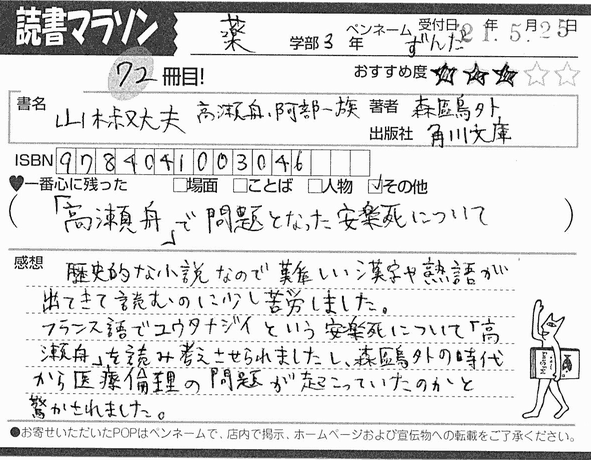 読書マラソン
薬 学部 3 年 ペンネーム ずんだ 受付日 21.5.25 年 月 日
72 冊目!
おすすめ度 ★★★☆☆
書名 山椒大夫 高瀬舟、阿部一族 著者 森鷗外
出版社 角川文庫
ISBN 9784041003046
♥一番心に残った □場面 □ことば □人物 ☑その他
(「高瀬舟」で問題となった安楽死について)
感想 歴史的な小説なので難しい漢字や熟語が
出てきて読むのに少し苦労しました。
フランス語でユウタナジイという安楽死について「高
瀬舟」を読み考えさせられましたし、森鷗外の時代
から医療倫理の問題が起こっていたのかと
驚かされました。
●お寄せいただいたPOPはペンネームで、店内で掲示、ホームページおよび宣伝物への転載をご了承ください。